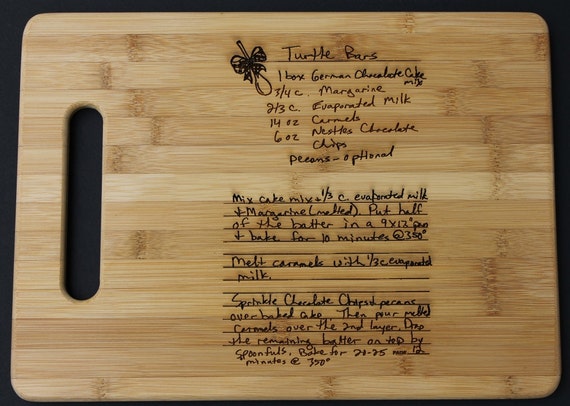 Turtle Bars
1 box German Chocolate Cake
mix
3/4 c. Margarine
2/3 c. Evaporated Milk
14 oz Carmels
6 oz Nestles Chocolate
Chips
pecans - optional
Mix cake mix + 1/3 c. evaporated milk
+ Margarine (melted). Put half
of the batter in a 9x12" pan
+ bake for 10 minutes @ 350°
Melt caramels with 1/3 c. evaporated
milk.
Sprinkle Chocolate Chips + pecans
over baked cake. Then pour melted
carmels over the 2nd layer. Drop
the remaining batter on top by
spoonfuls. Bake for 20-25
minutes @ 350°